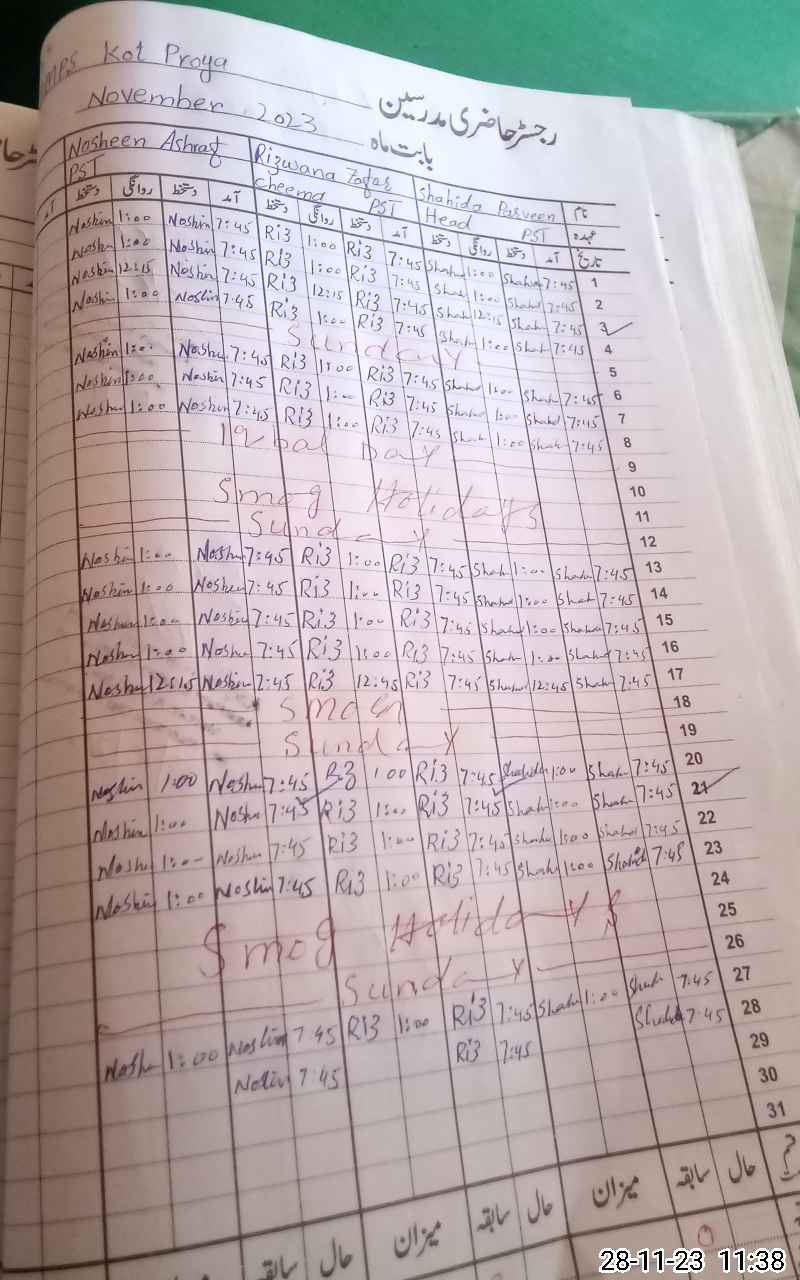 MPS Kot Proya
رجسٹر حاضری مدرسین
November 2023
بابت ماہ
Nosheen Ashraf Rizwana Zafar Shahida Parveen نام
PST Cheema PST Head PST عہدہ
دستخط روانگی دستخط آمد دستخط روانگی دستخط آمد دستخط روانگی دستخط آمد تاریخ
Noshin 1:00 Noshin 7:45 Ri3 1:00 Ri3 7:45 Shah 1:00 Shah 7:45 1
Noshin 1:00 Noshin 7:45 Ri3 1:00 Ri3 7:45 Shah 1:00 Shah 7:45 2
Noshin 12:15 Noshin 7:45 Ri3 12:15 Ri3 7:45 Shah 12:15 Shah 7:45 3
Noshin 1:00 Noshin 7:45 Ri3 1:00 Ri3 7:45 Shah 1:00 Shah 7:45 4
Sunday 5
Noshin 1:00 Noshin 7:45 Ri3 1:00 Ri3 7:45 Shahd 1:00 Shahd 7:45 6
Noshin 1:00 Noshin 7:45 Ri3 1:00 Ri3 7:45 Shahd 1:00 Shahd 7:45 7
Noshin 1:00 Noshin 7:45 Ri3 1:00 Ri3 7:45 Shah 1:00 Shah 7:45 8
Iqbal Day 9
10
Smog Holidays 11
Sunday 12
Noshin 1:00 Noshin 7:45 Ri3 1:00 Ri3 7:45 Shah 1:00 Shah 7:45 13
Noshin 1:00 Noshin 7:45 Ri3 1:00 Ri3 7:45 Shah 1:00 Shah 7:45 14
Noshin 1:00 Noshin 7:45 Ri3 1:00 Ri3 7:45 Shah 1:00 Shah 7:45 15
Noshin 1:00 Noshin 7:45 Ri3 1:00 Ri3 7:45 Shah 1:00 Shah 7:45 16
Noshin Noshin 7:45 Ri3 12:45 Ri3 7:45 Shah 12:45 Shah 7:45 17
Smog 18
Sunday 19
Noshin 1:00 Noshin 7:45 Ri3 1:00 Ri3 7:45 Shahida 1:00 Shah 7:45 20
Noshin 1:00 Noshin 7:45 Ri3 1:00 Ri3 7:45 Shah 1:00 Shah 7:45 21
Nosh 1:00 Noshin 7:45 Ri3 1:00 Ri3 7:45 Shah 1:00 Shahd 7:45 22
Noshin 1:00 Noshin 7:45 Ri3 1:00 Ri3 7:45 Shah 1:00 Shahid 7:45 23
24
Smog Holidays 25
Sunday 26
Nosh 1:00 Noshin 7:45 Ri3 1:00 Ri3 7:45 Shah 1:00 Shah 7:45 27
Noshin 7:45 Ri3 7:45 Shahid 7:45 28
29
30
31
سابقہ حال میزان سابقہ حال میزان سابقہ حال
28-11-23 11:38